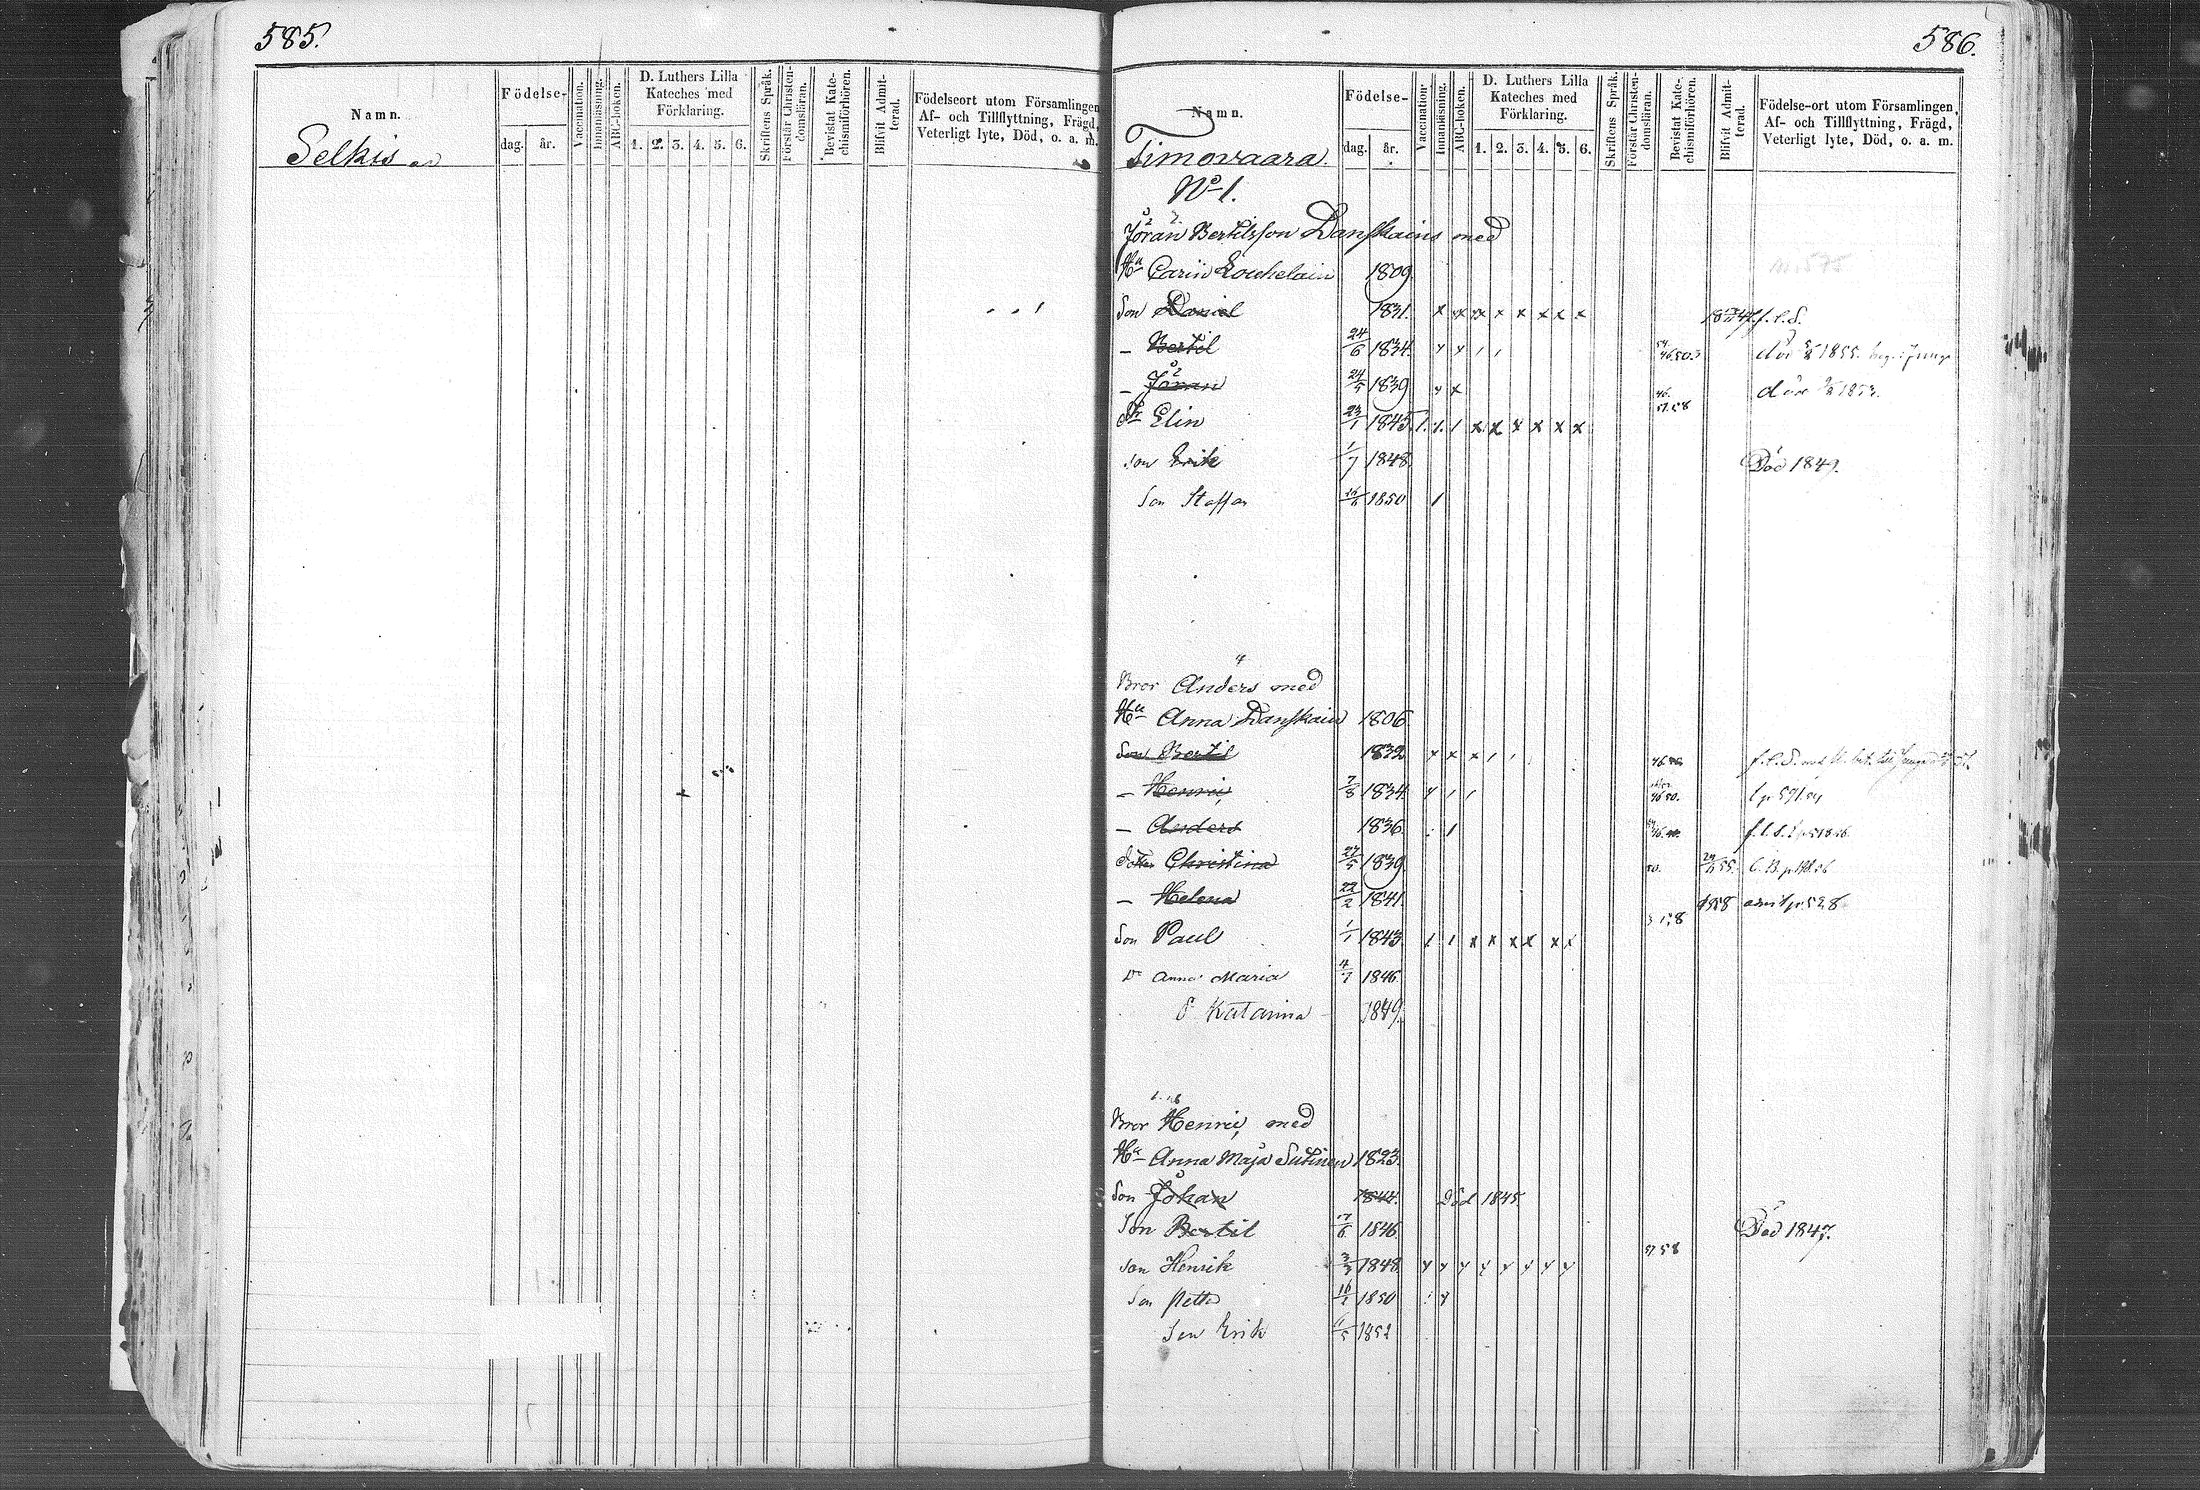 585.
Namn.
Födelse-
dag. år.
Vaccination.
Innanläsning.
ABC-boken.
D. Luthers Lilla
Kateches med
Förklaring.
1. 2. 3. 4. 5. 6.
Skriftens Språk.
Förstår Christen-
domsläran.
Bevistat Kate-
chismiförhören.
Blifvit Admit-
terad.
Födelseort utom Församlingen
Af- och Tillflyttning, Frägd,
Veterligt lyte, Död, o. a. m.
Selkis
586.
Namn.
Födelse-
dag. år.
Vaccination.
Innanläsning.
ABC-boken.
D. Luthers Lilla
Kateches med
Förklaring.
1. 2. 3. 4. 5. 6.
Skriftens Språk.
Förstår Christen-
domsläran.
Bevistat Kate-
chismiförhören.
Blifvit Admit-
terad.
Födelse-ort utom Församlingen,
Af- och Tillflyttning, Frägd,
Veterligt lyte, Död, o. a. m.
Timovaara.
No 1.
Jöran Bertilsson Danskain med
Hu Carin 1809.
Son Daniel 1831. x x x x x x x x
– Bertil 24/6 1834. död 1855.
– Jöran 24/5 1839 död 1853.
Dr Elin 23/1 1845. 1. 1. 1 x x x x x x 46. 57.58
son Erik 1/7 1848. Död 1849.
Son Staffan 1850 1
Bror Anders med
Hu Anna Danskain 1806.
Son Bertil 1832
– Henric 7/8 1834. 46 50. p 591.
– Anders 1836.
Dotter Christina 27/5 1839. 50.
– Helena 22/2 1841. 1858 p. 528
Son Paul 1/1 1843. 1 1 x x x x x x
Dr Anna Maria 4/7 1846.
D Katarina 1849.
Bror Henric med
Hu Anna Maja Sutinen 1823.
Son Johan 1844. Död 1845.
Son Bertil 17/6 1846. Död 1847.
son Henrik 3/3 1848. 57 58
Son Petter 16/1 1850
Son Erik 11/5 1852